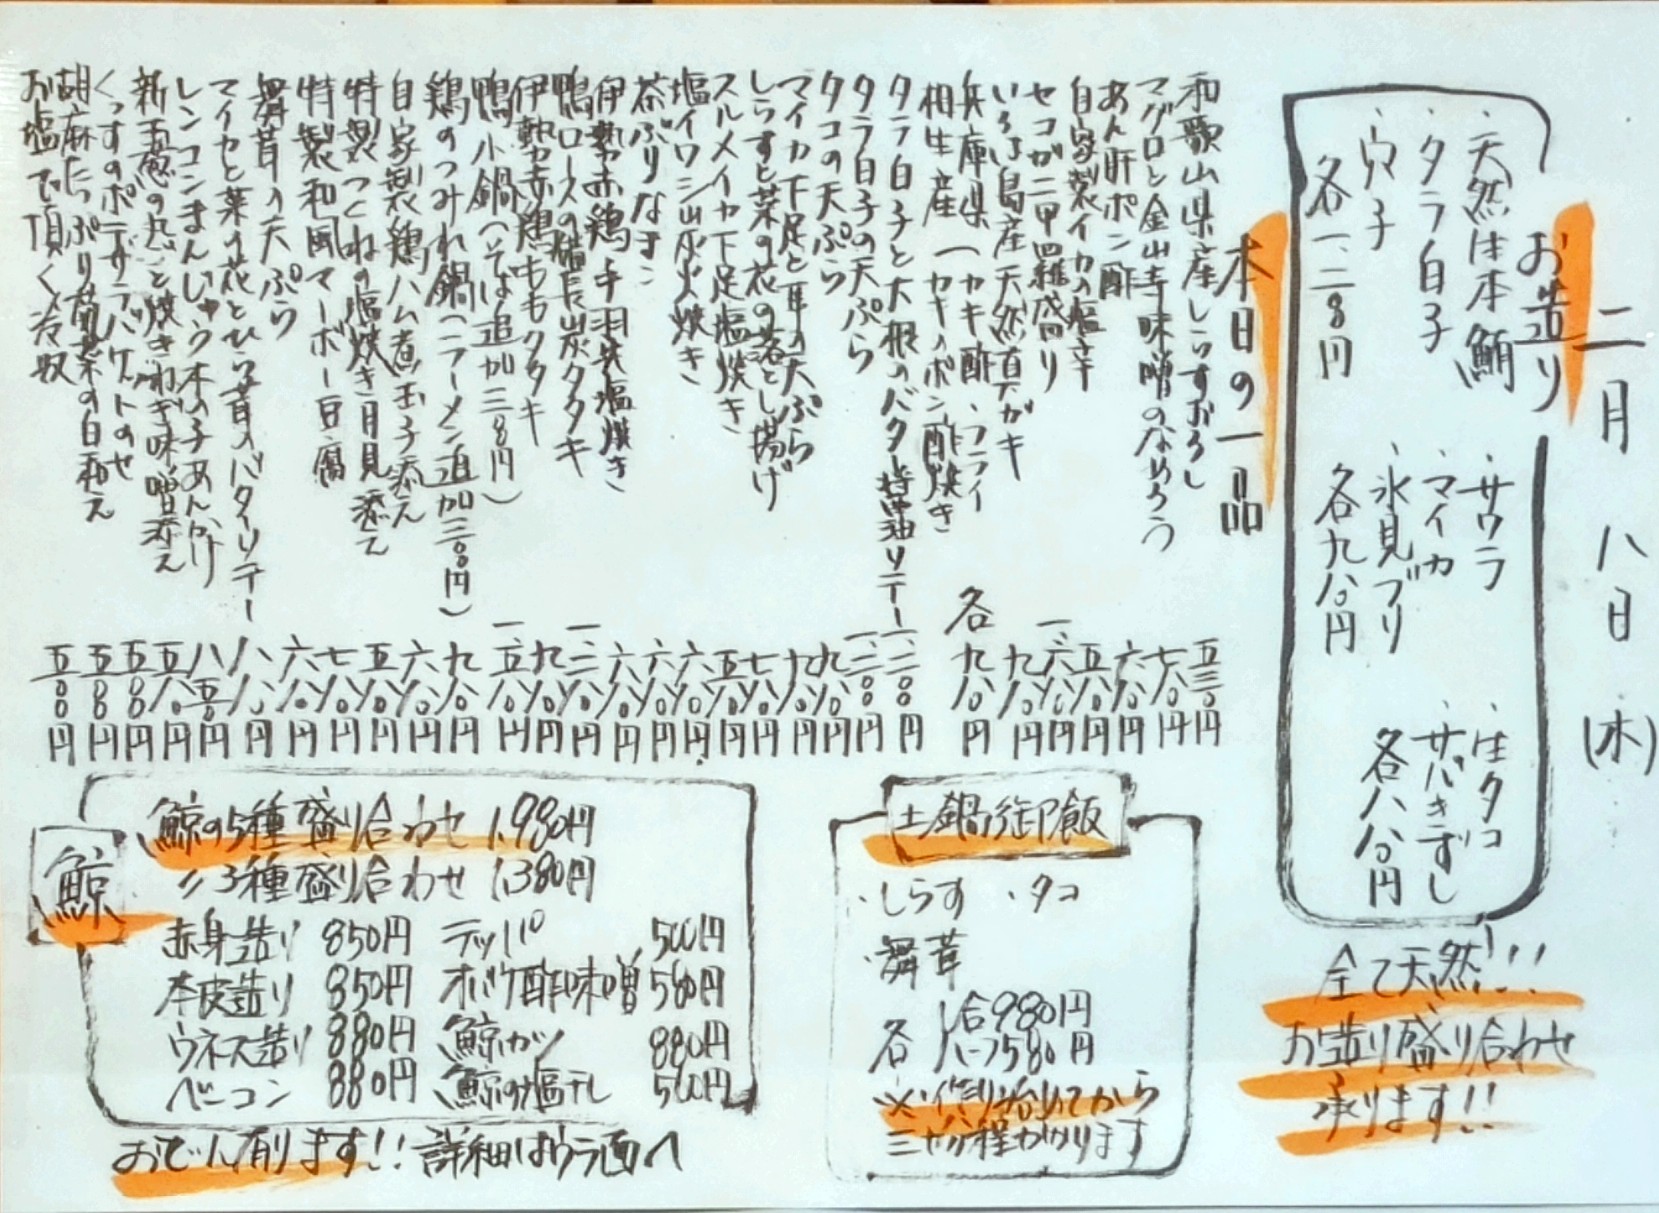 二月八日(木)
お造り
・天然生本鮪
・タラ白子
・穴子
各一、二八〇円
・サワラ
・マイカ
・氷見ブリ
各九八〇円
・生タコ
・サバきずし
各八八〇円
全て天然!!!
お造り盛り合わせ
承ります!!
本日の一品
和歌山県産しらすおろし 五三〇円
マグロと金山寺味噌のなめろう 七八〇円
あん肝ポン酢 六八〇円
自家製イカの塩辛 五八〇円
セコガニ甲羅盛り 一、六八〇円
いろは島産天然真ガキ 九八〇円
兵庫県 (カキ酢・フライ
相生産 (カキのポン酢焼き 各九八〇円
タラ白子と大根のバター醤油ソテー 一、二〇〇円
タラ白子の天ぷら 一、二〇〇円
タコの天ぷら 九八〇円
マイカ下足と耳の天ぷら
しらすと菜の花の落とし揚げ 七八〇円
スルメイカ下足塩焼き 五八〇円
塩イワシ炭火焼き 六八〇円
茶ぶりなまこ 六八〇円
伊勢赤鶏手羽先塩焼き 六八〇円
鴨ロースの備長炭タタキ
伊勢赤鶏ももタタキ 九八〇円
鴨小鍋(そば追加三八〇円)
鶏のつみれ鍋(ラーメン追加三〇〇円) 九八〇円
自家製鶏ハム煮玉子添え 六八〇円
特製つくねの塩焼き月見添え 五八〇円
特製和風マーボー豆腐 七八〇円
舞茸の天ぷら 六八〇円
マイカと菜の花とひら茸のバターソテー
レンコンまんじゅう木の子あんかけ 八五〇円
新玉葱の丸ごと焼きねぎ味噌添え 五八〇円
くっすのポテサラバケットのせ 五八〇円
胡麻たっぷり菊菜の白和え
お塩で頂く冷奴 五〇〇円
土鍋御飯
・しらす ・タコ
・舞茸
各 1合980円
ハーフ580円
※作り始めてから
三十分程かかります
鯨
鯨の5種盛り合わせ 1,980円
〃3種盛り合わせ 1,380円
赤身造り 850円 テッパ 500円
本皮造り 850円 オバケ酢味噌 580円
ウネス造り 880円 鯨カツ 880円
ベーコン 880円 鯨の塩干し 500円
おでん有ります!!詳細はウラ面へ